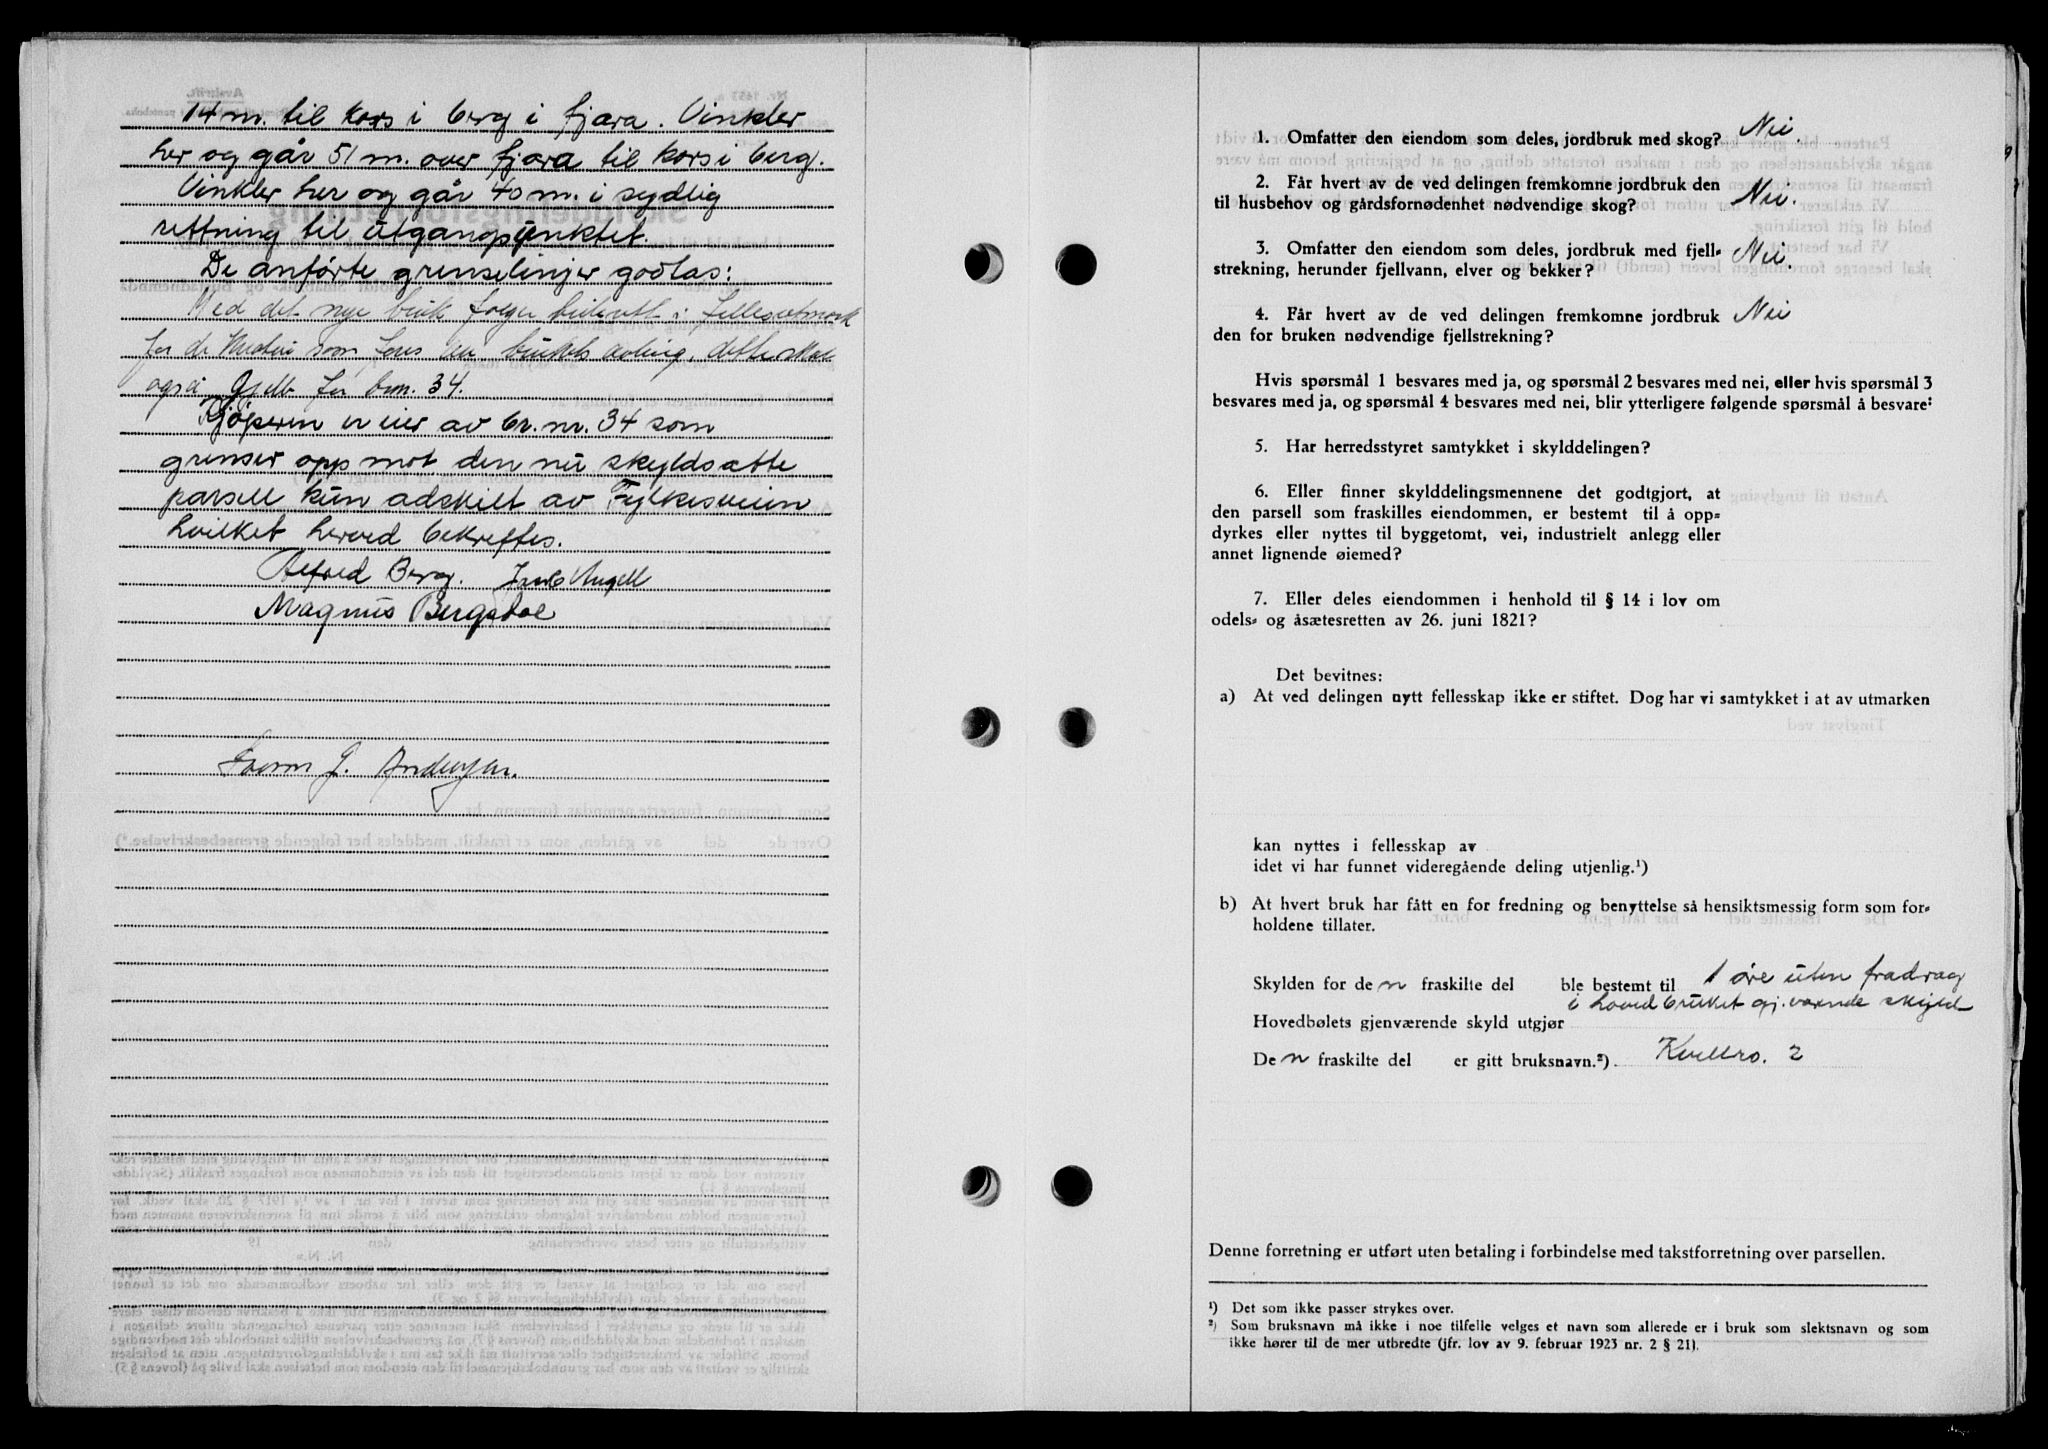 14 m. til kors i berg i fjæra. Vinkler
her og går 51 m. over fjæra til kors i berg.
Vinkler her og går 40 m. i sydlig
rettning til utgangspunktet.
De anførte grenselinjer godtas:
Med det nye bruk følger beiterett i fellesutmark
for de som fores på brukets avling, dette skal
også gjelde for bnr. 34.
Kjøperen er eier av br. nr. 34 som
grenser opp mot den nu skyldsatte
parsell kun adskilt av Fylkesveien
hvilket herved bekreftes.
Alfred Berg. Angell
Magnus Bergsdoe
G. Andersen.
1. Omfatter den eiendom som deles, jordbruk med skog? Nei.
2. Får hvert av de ved delingen fremkomne jordbruk den
til husbehov og gårdsfornødenhet nødvendige skog? Nei.
3. Omfatter den eiendom som deles, jordbruk med fjell-
strekning, herunder fjellvann, elver og bekker? Nei.
4. Får hvert av de ved delingen fremkomne jordbruk Nei
den for bruken nødvendige fjellstrekning?
Hvis spørsmål 1 besvares med ja, og spørsmål 2 besvares med nei, eller hvis spørsmål 3
besvares med ja, og spørsmål 4 besvares med nei, blir ytterligere følgende spørsmål å besvare:
5. Har herredsstyret samtykket i skylddelingen?
6. Eller finner skylddelingsmennene det godtgjort, at
den parsell som fraskilles eiendommen, er bestemt til å opp-
dyrkes eller nyttes til byggetomt, vei, industrielt anlegg eller
annet lignende øiemed?
7. Eller deles eiendommen i henhold til § 14 i lov om
odels- og åsætesretten av 26. juni 1821?
Det bevitnes:
a) At ved delingen nytt fellesskap ikke er stiftet. Dog har vi samtykket i at av utmarken
kan nyttes i fellesskap av
idet vi har funnet videregående deling utjenlig.¹)
b) At hvert bruk har fått en for fredning og benyttelse så hensiktsmessig form som for-
holdene tillater.
Skylden for de n fraskilte del ble bestemt til 1 øre uten fradrag
i hovedbruket gj.værende skyld
Hovedbølets gjenværende skyld utgjør
De n fraskilte del er gitt bruksnavn.²) Kvellro. 2
Denne forretning er utført uten betaling i forbindelse med takstforretning over parsellen.
¹) Det som ikke passer strykes over.
²) Som bruksnavn må ikke i noe tilfelle velges et navn som allerede er i bruk som slektsnavn og som
ikke hører til de mer utbredte (jfr. lov av 9. februar 1923 nr. 2 § 21).